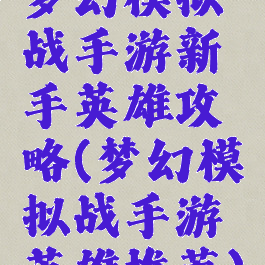 梦幻模拟
战手游新
手英雄攻
略(梦幻模
拟战手游
英雄推荐)